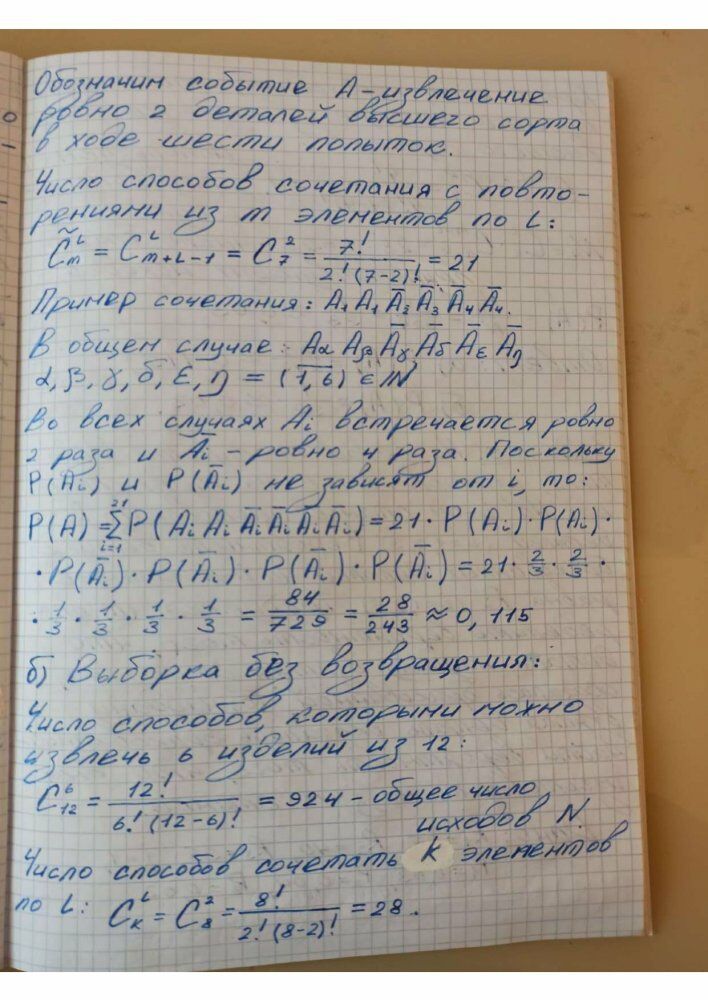 Обозначим событие А - извлечение
ровно 2 деталей высшего сорта
в ходе шести попыток.
Число способов сочетания с повто-
рениями из m элементов по L:
C̃ₘᴸ = Cᴸₘ₊L₋₁ = C₇² = 7! / 2!(7-2)! = 21
Пример сочетания: A₁ A₁ Ā₂ Ā₃ Ā₄ Ā₄.
В общем случае: Aα Aβ Āγ Āδ Āε Āη
α, β, γ, δ, ε, η = (1,6) ∈ N
Во всех случаях Ai встречается ровно
2 раза и Āi - ровно 4 раза. Поскольку
P(Ai) и P(Āi) не зависят от i, то:
P(A) = ∑²¹ᵢ₌₁ P(Ai Ai Āi Āi Āi Āi) = 21 · P(Ai) · P(Ai) ·
· P(Āi) · P(Āi) · P(Āi) · P(Āi) = 21 · 2/3 · 2/3 ·
· 1/3 · 1/3 · 1/3 · 1/3 = 84/729 = 28/243 ≈ 0,115
б) Выборка без возвращения:
Число способов, которыми можно
извлечь 6 изделий из 12:
C₁₂⁶ = 12! / 6!(12-6)! = 924 - общее число
исходов N
Число способов сочетать k элементов
по L: Cₖᴸ = C₈² = 8! / 2!(8-2)! = 28.